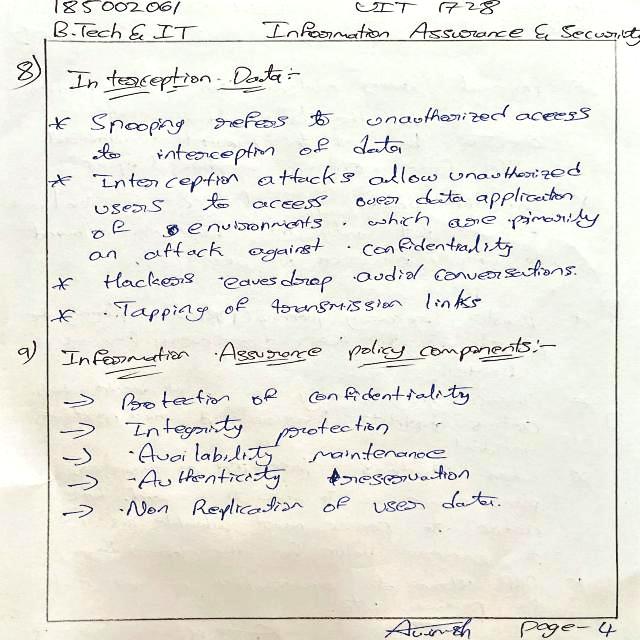 185002061 UIT 1728
B.Tech & IT Information Assurance & Security
8) Interception Data:-
* Snooping refers to unauthorized access
to interception of data
* Interception attacks allow unauthorized
users to access over data application
of environments. which are primarily
an attack against confidentiality
* Hackers eavesdrop audial conversations.
* Tapping of transmission links
9) Information Assurance policy components:-
→ Protection of confidentiality
→ Integrity protection
→ Availability maintenance
→ Authenticity preservation
→ Non Replication of user data.
Page-4